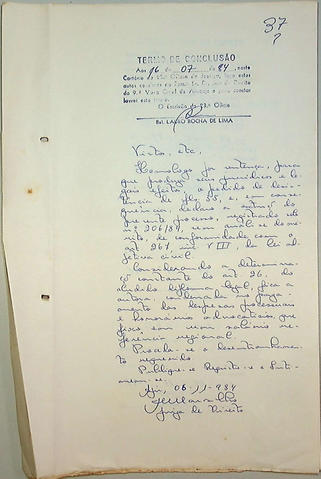 37
TERMO DE CONCLUSÃO
Aos 16 de 07 de 84, neste
Cartório do 23º Ofício de Justiça, faço estes
autos conclusos ao
da 9ª Vara Cível
lavrei este termo.
O Escrivão do 23º Ofício
Bel. LAURO ROCHA DE LIMA
Vistos, etc.
Homologo por sentença, para
que produza seus jurídicos e le-
gais efeitos, o pedido de desis-
tência de fls 35, e, em conse-
quência, declaro a extinção do
presente processo, registrado sob
nº 206/84, sem análise do mé-
rito, de conformidade com o
art 267, inc VIII, da lei ad-
jetiva civil.
Considerando a determina-
ção constante do art 26, do
aludido diploma legal, fica a
autora condenada no paga-
mento das despesas processuais
e honorários advocatícios, que
fixo em um salário re-
ferência regional.
Proceda-se o desentranhamen-
to requerido
Publique-se Registre-se e Inti-
mem-se.
Aju, 06-11-984
Juiza de Direito